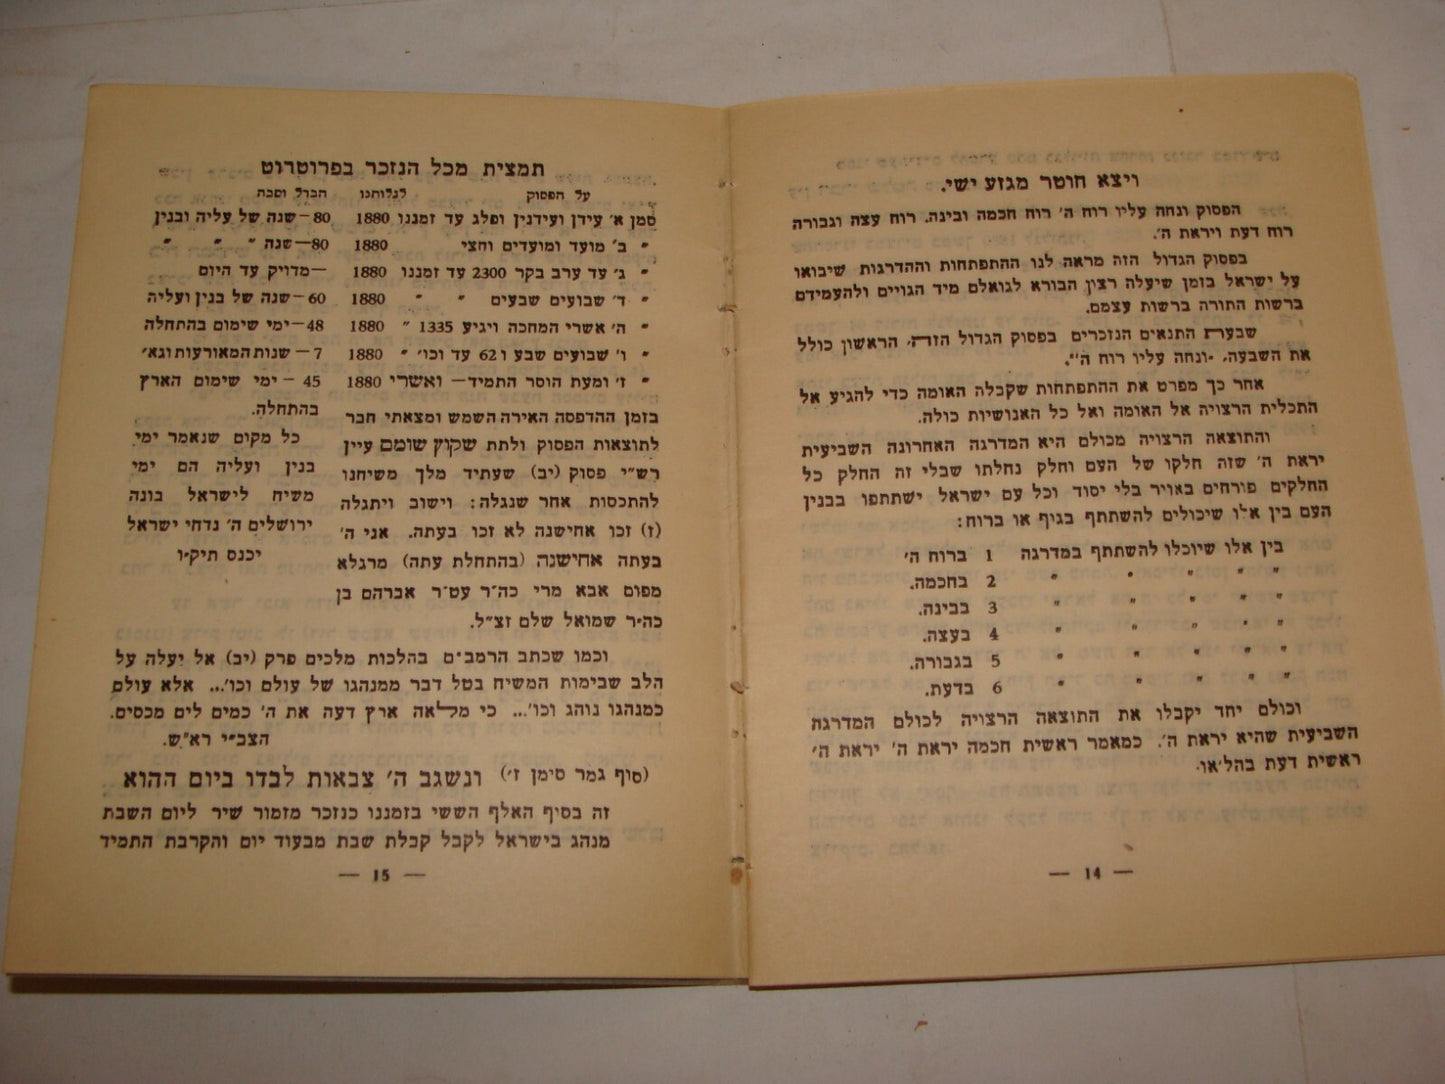 ויצא חוטר מגזע ישי.
הפסוק ונחה עליו רוח ה׳ רוח חכמה ובינה. רוח עצה וגבורה
רוח דעת ויראת ה׳.
בפסוק הגדול הזה מראה לנו ההתפתחות וההדרגות שיבואו
על ישראל בזמן שיעלה רצון הבורא לגואלם מיד הגויים ולהעמידם
ברשות התורה ברשות עצמם.
שבערת התנאים הנזכרים בפסוק הגדול הזה, הראשון כולל
את השבעה, ״ונחה עליו רוח ה׳״.
אחר כך מפרט את ההתפתחות שקבלה האומה כדי להגיע אל
התכלית הרצויה אל האומה ואל כל האנושיות כולה.
והתוצאה הרצויה מכולם היא המדרגה האחרונה השביעית
יראת ה׳ שזה חלקו של העם וחלק נחלתו שבלי זה החלק כל
החלקים פורחים באויר בלי יסוד וכל עם ישראל ישתתפו בבנין
העם בין אלו שיכולים להשתתף בגוף או ברוח:
בין אלו שיוכלו להשתתף במדרגה 1 ברוח ה׳
״ ״ ״ ״ ״ 2 בחכמה.
״ ״ ״ ״ ״ 3 בבינה.
״ ״ ״ ״ ״ 4 בעצה.
״ ״ ״ ״ ״ 5 בגבורה.
״ ״ ״ ״ ״ 6 בדעת.
וכולם יחד יקבלו את התוצאה הרצויה לכולם המדרגה
השביעית שהיא יראת ה׳. כמאמר ראשית חכמה יראת ה׳ יראת ה׳
ראשית דעת בהל״או.
— 14 —
תמצית מכל הנזכר בפרוטרוט
על הפסוק לגלותנו הבדל וסבת
סמן א׳ עידן ועידנין ופלג עד זמננו 1880 80–שנה של עליה ובנין
״ ב׳ מועד ומועדים וחצי 1880 80—שנה ״ ״ ״
״ ג׳ עד ערב בקר 2300 עד זמננו 1880 —מדויק עד היום
״ ד׳ שבועים שבעים ״ ״ 1880 60–שנה של בנין ועליה
״ ה׳ אשרי המחכה ויגיע 1335 ״ 1880 48–ימי שימום בהתחלה
״ ו׳ שבועים שבע ו 62 עד וכו׳ ״ 1880 7–שנות המאורעות וגא׳
״ ז׳ ומעת הוסר התמיד— ואשרי 1880 45 – ימי שימום הארץ
בהתחלה.
בזמן ההדפסה האירה השמש ומצאתי חבר
לתוצאות הפסוק ולתת שקוץ שומם עיין
רש״י פסוק (יב) שעתיד מלך משיחנו
להתכסות אחר שנגלה: וישוב ויתגלה
(ז) זכו אחישנה לא זכו בעתה. אני ה׳
בעתה אחישנה (בהתחלת עתה) מרגלא
מפום אבא מרי כה״ר עט״ר אברהם בן
כה״ר שמואל שלם זצ״ל.
כל מקום שנאמר ימי
בנין ועליה הם ימי
משיח לישראל בונה
ירושלים ה׳ נדחי ישראל
יכנס תיק״ו
וכמו שכתב הרמב״ם בהלכות מלכים פרק (יב) אל יעלה על
הלב שבימות המשיח בטל דבר ממנהגו של עולם וכו׳... אלא עולם
כמנהגו נוהג וכו׳... כי מלאה ארץ דעה את ה׳ כמים לים מכסים.
הצב״י רא״ש.
(סוף גמר סימן ז׳) ונשגב ה׳ צבאות לבדו ביום ההוא
זה בסיף האלף הששי בזמננו כנזכר מזמור שיר ליום השבת
מנהג בישראל לקבל קבלת שבת מבעוד יום והקרבת התמיד
— 15 —